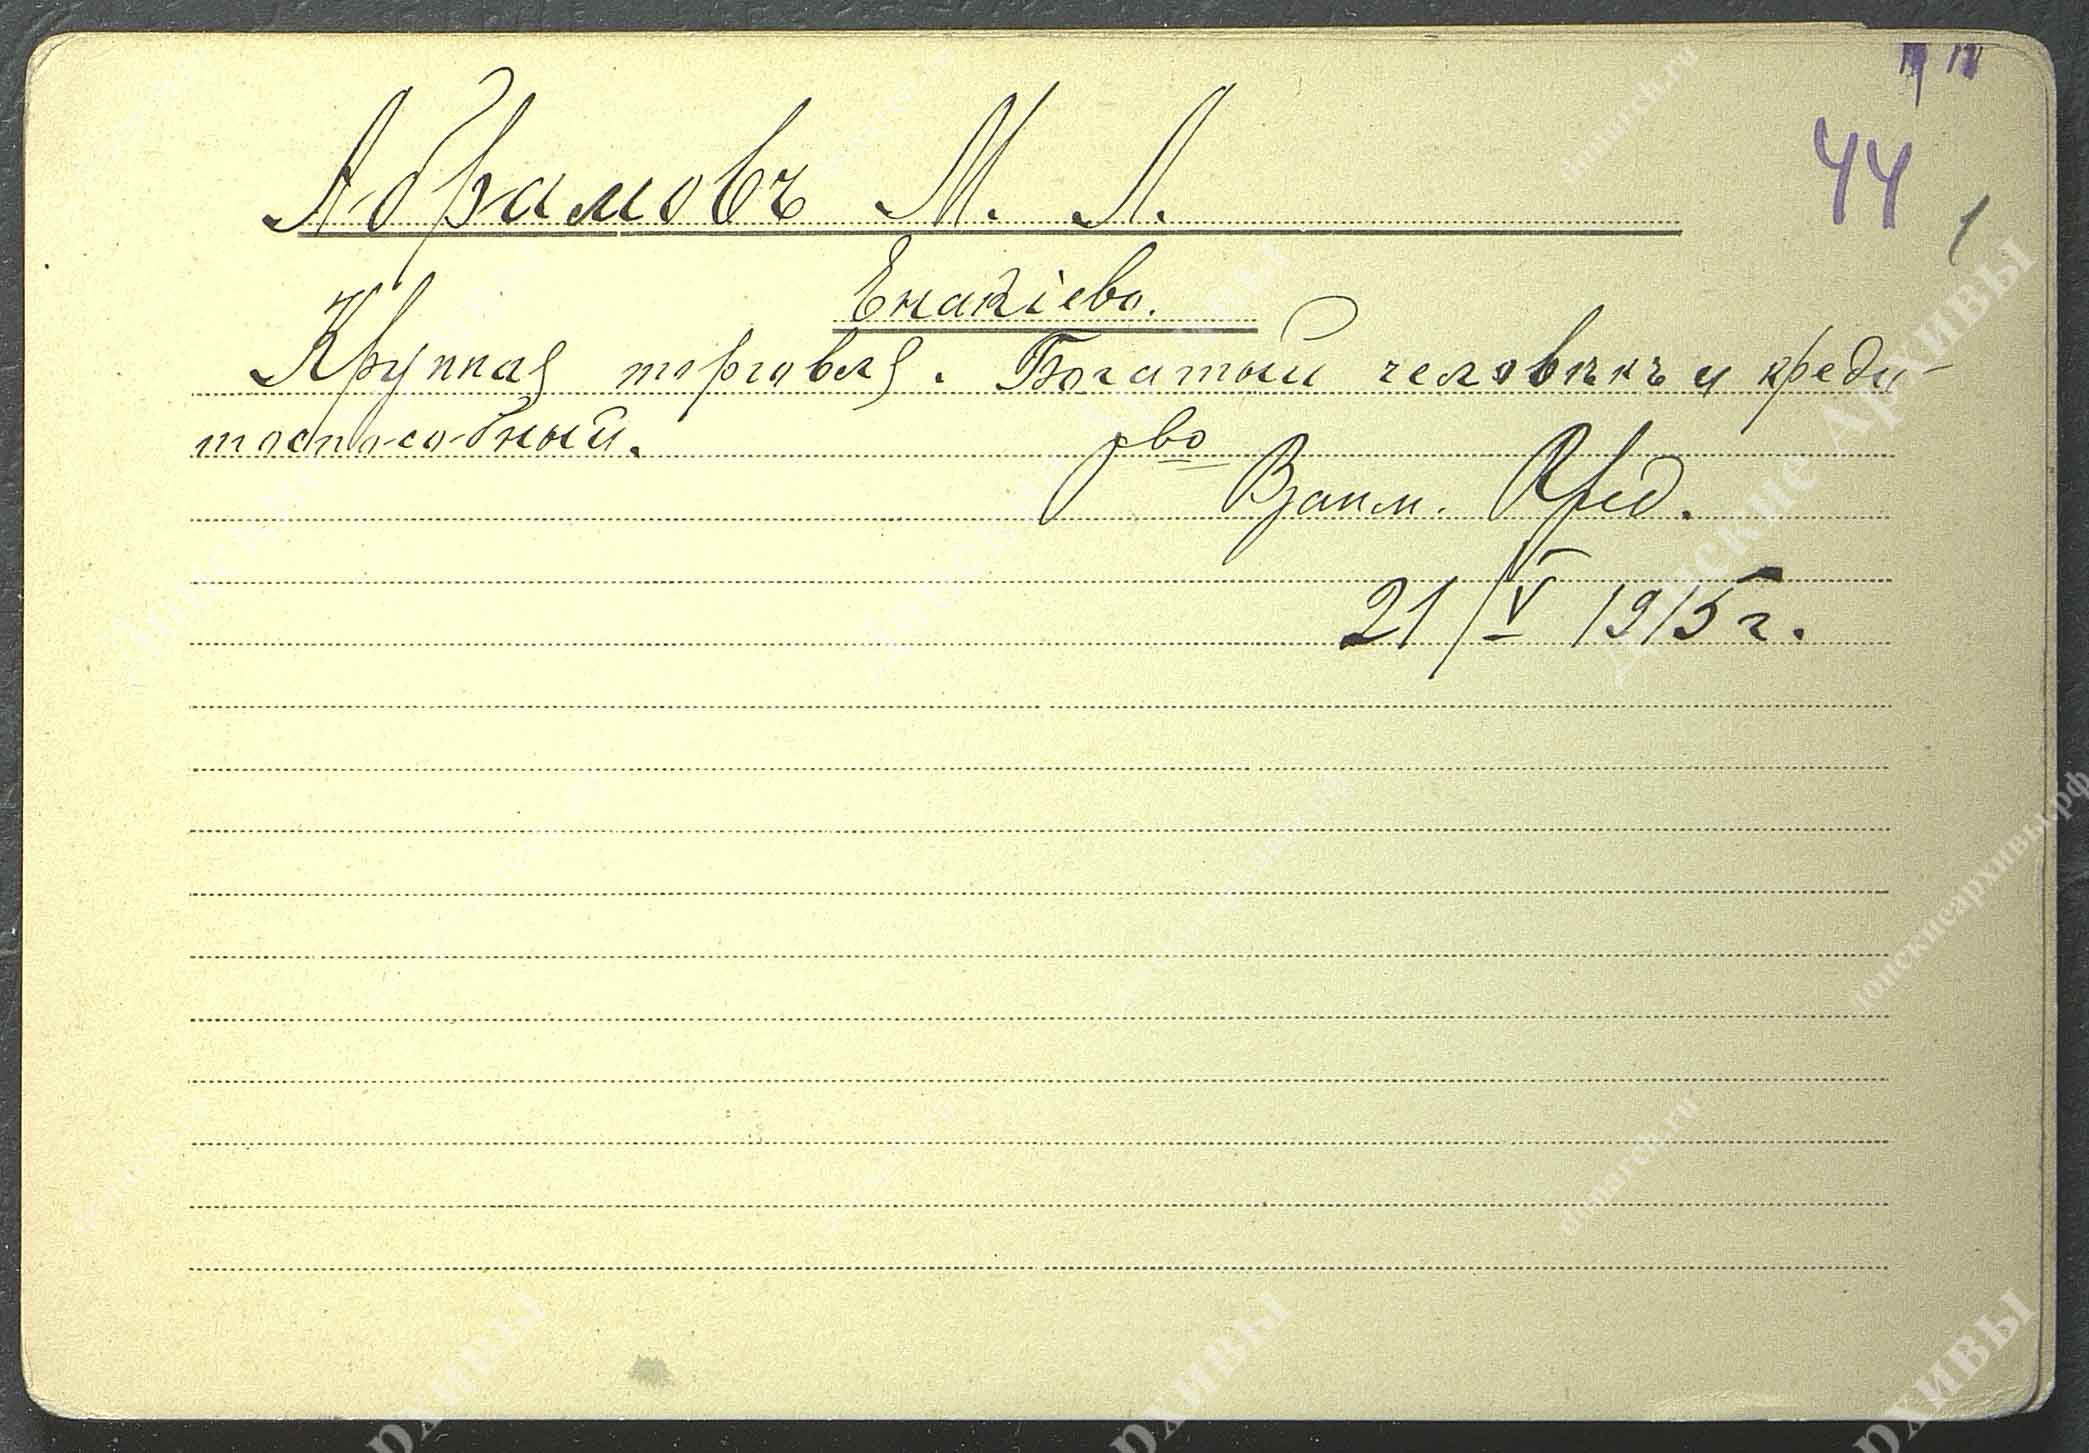 44
1
Абрамовъ М. Л.
Енакіево.
Крупная торговля. Богатый человѣкъ и креди-
тоспособный.
О-во
Взаим. Кред.
21/V 1915 г.
Донские Архивы
donarch.ru
донскиеархивы.рф